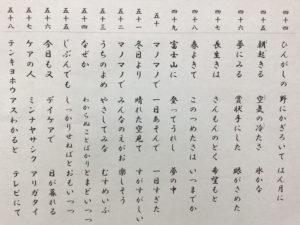 四十四 ひんがしの 野にかぎろいて はん月に
四十五 朝起きる 空気の冷たさ 氷かな
四十六 夢にみる 賞状手にした 眼がさめた
四十七 長生きは さんもんのとく 希望もと
四十八 春よきて このつめたさは いつまでか
四十九 富士山に 登ってうれし 夢の中
五十 マノマノで 一日あそんで 一日すぎた
五十一 冬日より 晴れた空見て すがすがしい
五十二 マノマノで みんなのえがお 楽しそう
五十三 うちのよめ やさしてみな むすめいぶ
五十四 なぜか わからぬことばかりと まどいつつ
五十五 じぶんでも しっかりせねばと おもいつつ
五十六 今日も又 デイケアで 日が暮れる
五十七 ケアの人 ミンナヤサシク アリガタイ
五十八 テンキヨホウ アスわかると テレビにて